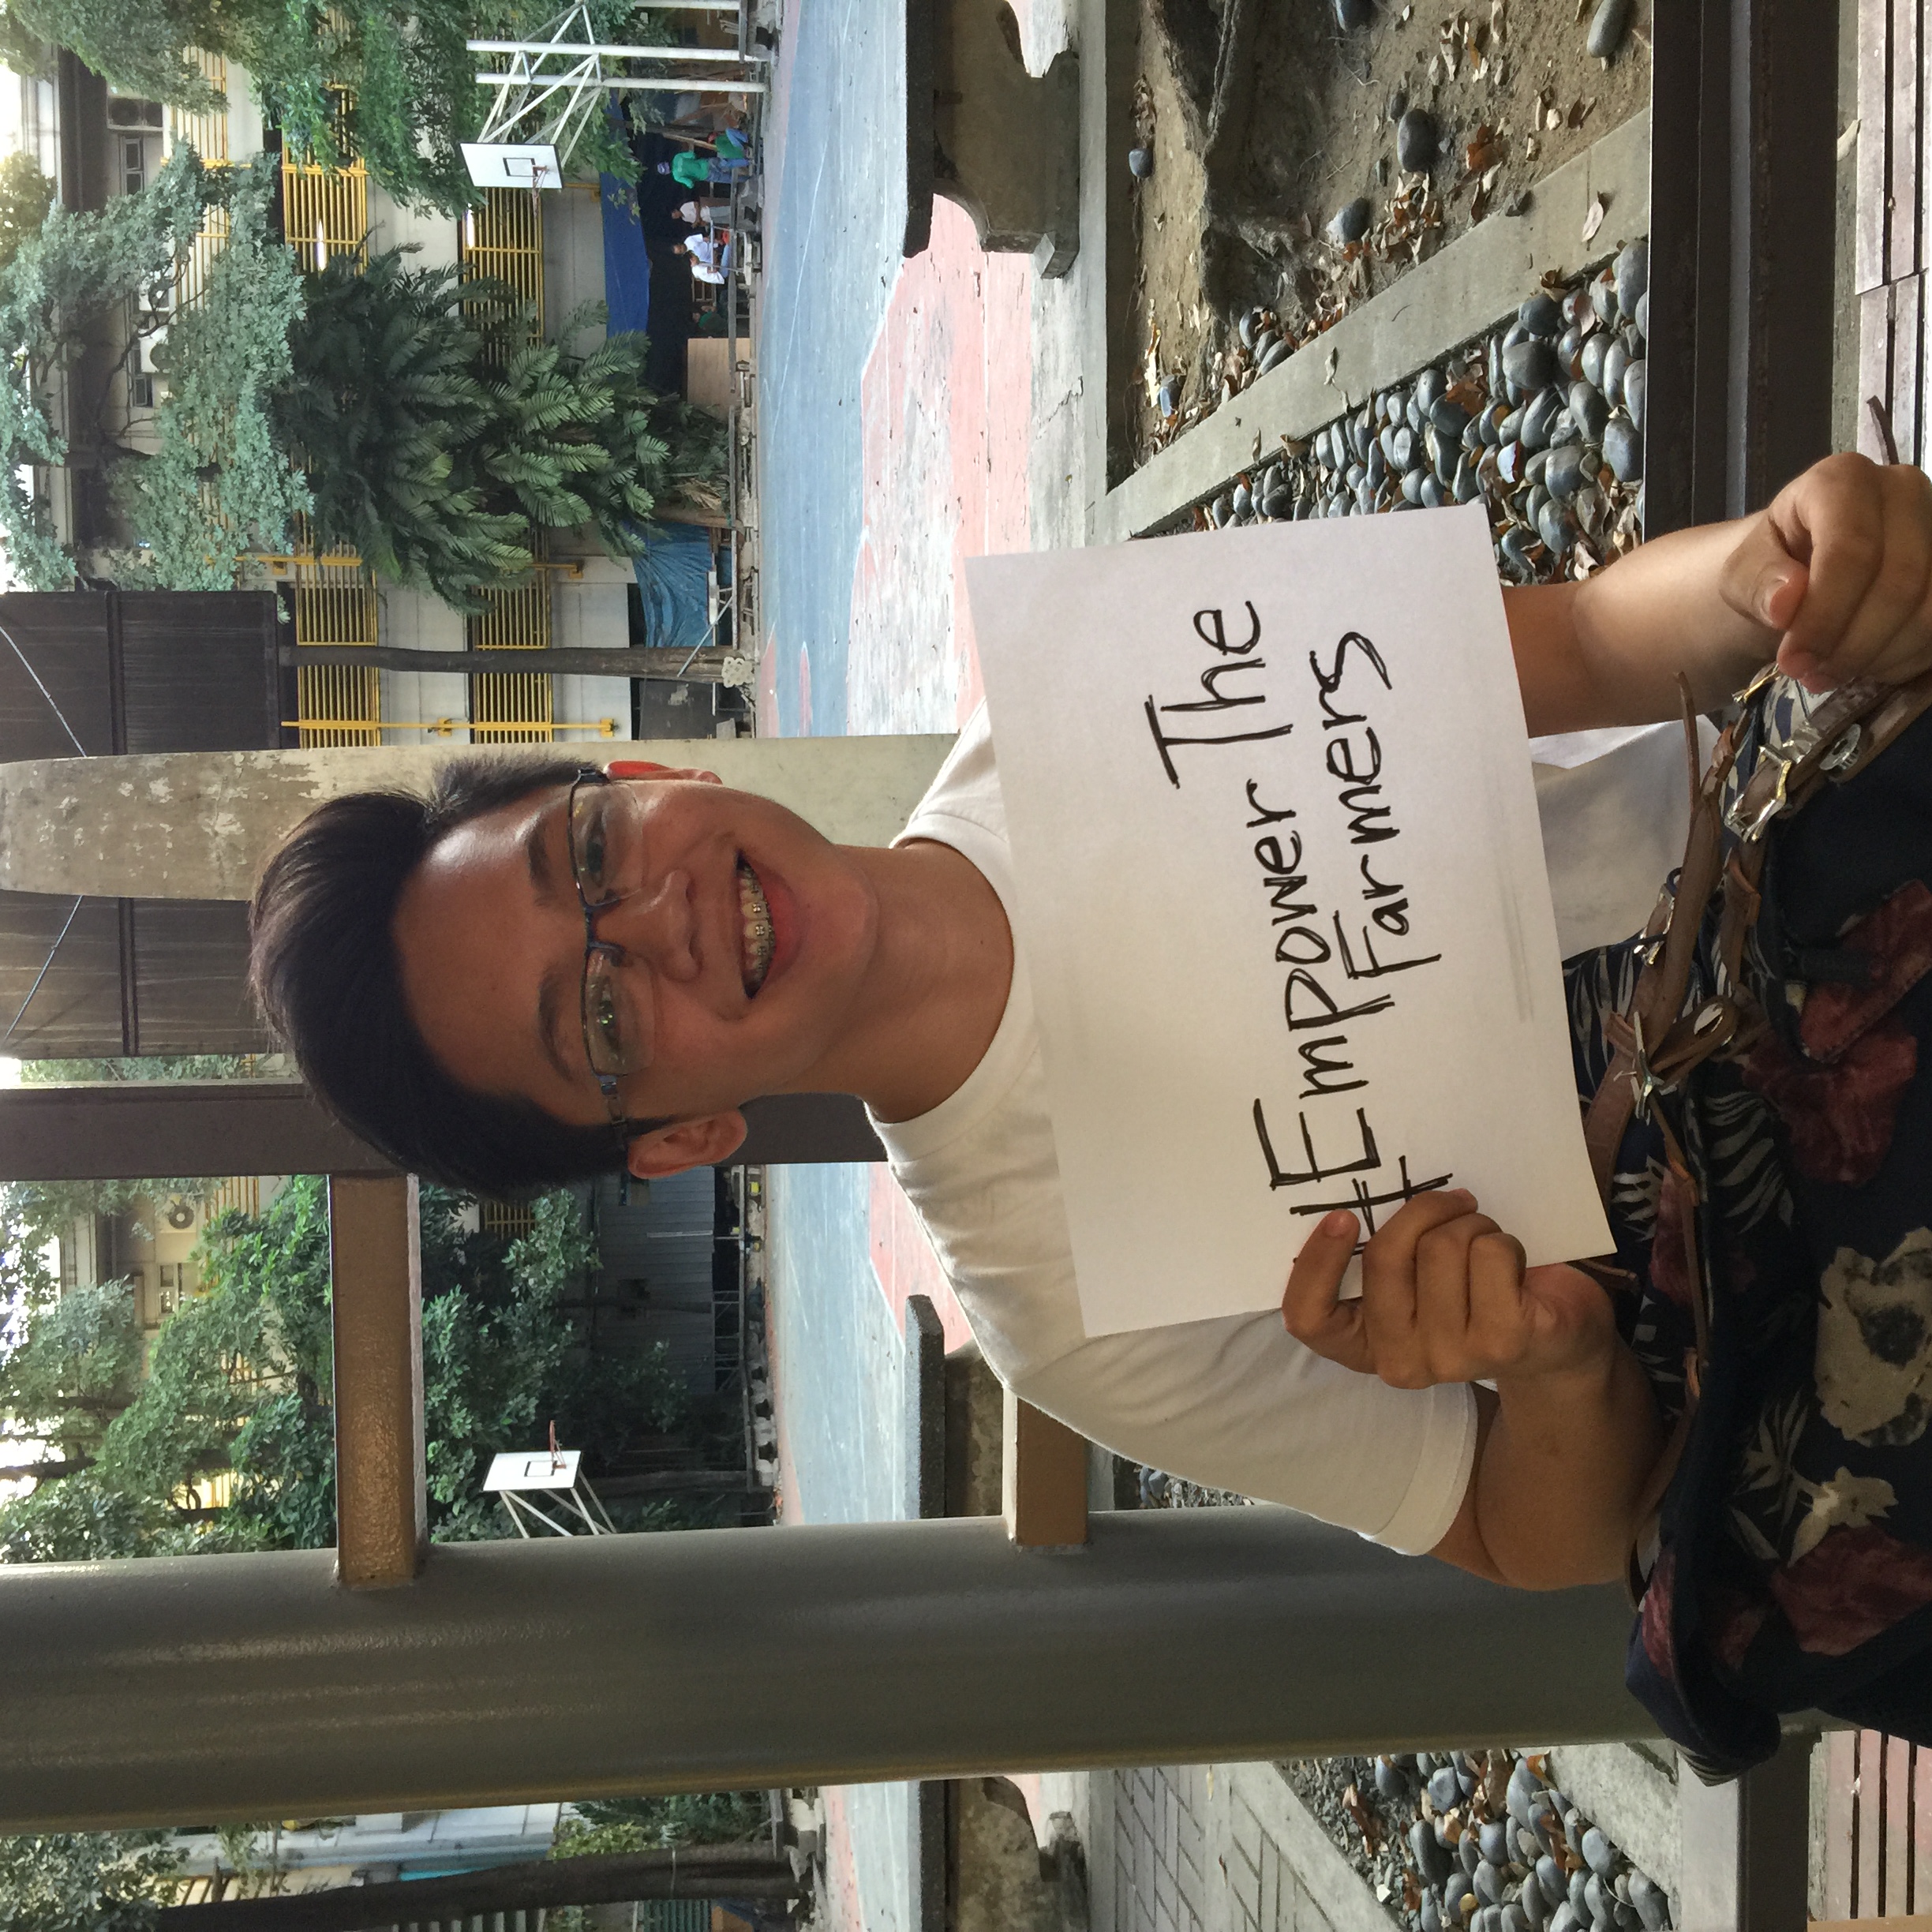 #Empower The
Farmers